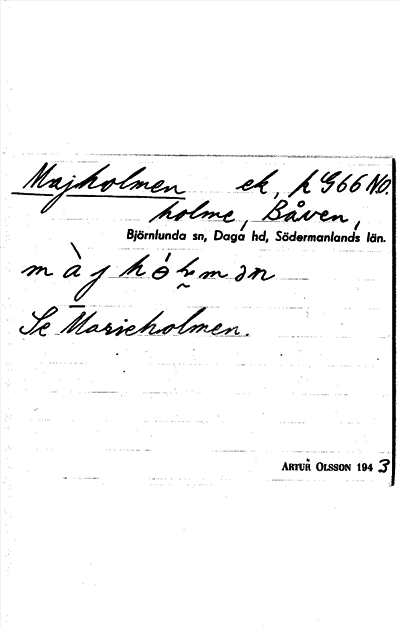 Majholmen ek, k G66 NO.
holme, Båven,
Björnlunda sn, Daga hd, Södermanlands län.
Se Marieholmen.
ARTUR OLSSON 1943